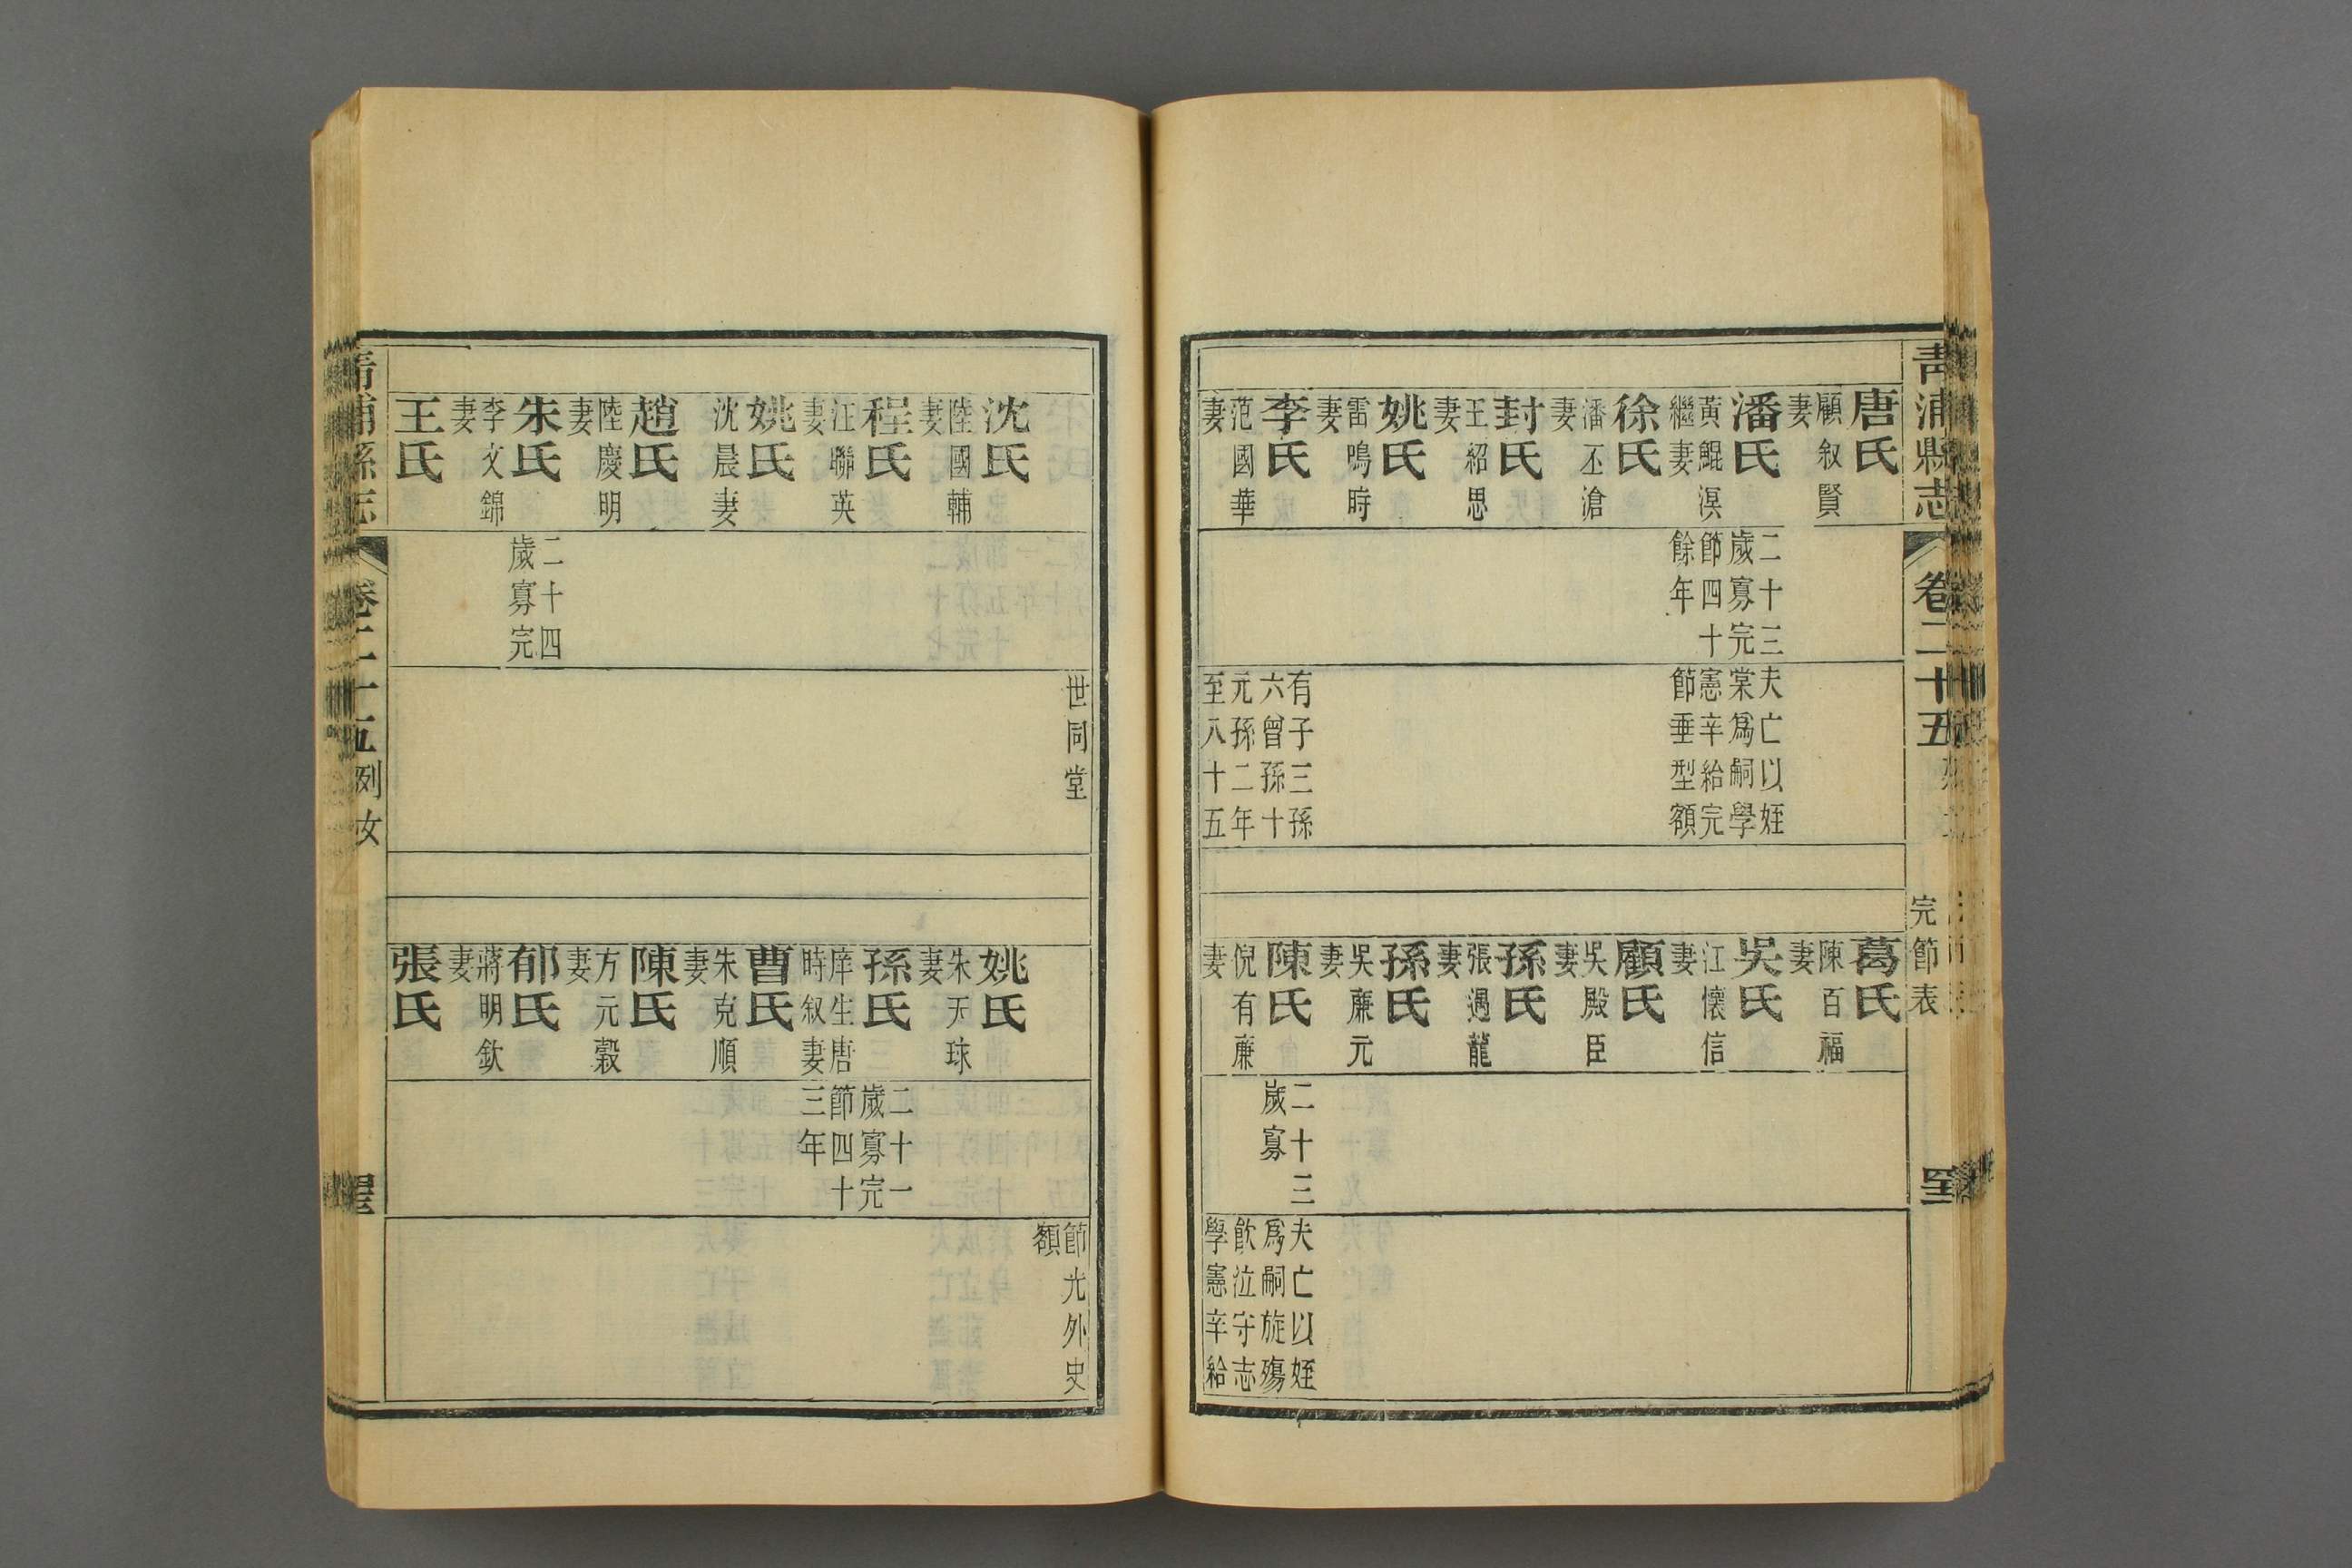 青浦縣志
卷二十五
完節表
唐氏
顧叙賢
妻
潘氏
黃鯤溟
繼妻
徐氏
潘丕滄
妻
封氏
王紹思
妻
姚氏
雷鳴時
妻
李氏
范國華
妻
二十三
歲寡完
節四十
餘年
夫亡以姪
棠爲嗣學
憲辛給完
節垂型額
有子三孫
六曾孫十
元孫二年
至八十五
葛氏
陳百福
妻
吳氏
江懷信
妻
顧氏
吳殿臣
妻
孫氏
張遇龍
妻
孫氏
吳廉元
妻
陳氏
倪有廉
妻
二十三
歲寡
夫亡以姪
爲嗣旋殤
飲泣守志
學憲辛給
沈氏
陸國輔
妻
程氏
汪聯英
妻
姚氏
沈晨妻
趙氏
陸慶明
妻
朱氏
李文錦
妻
王氏
二十四
歲寡完
世同堂
姚氏
朱天球
妻
孫氏
庠生唐
時叙妻
曹氏
朱克順
妻
陳氏
方元穀
妻
郁氏
蔣明欽
妻
張氏
二十一
歲寡完
節四十
三年
節光外史
額
青浦縣志
卷二十五
列女